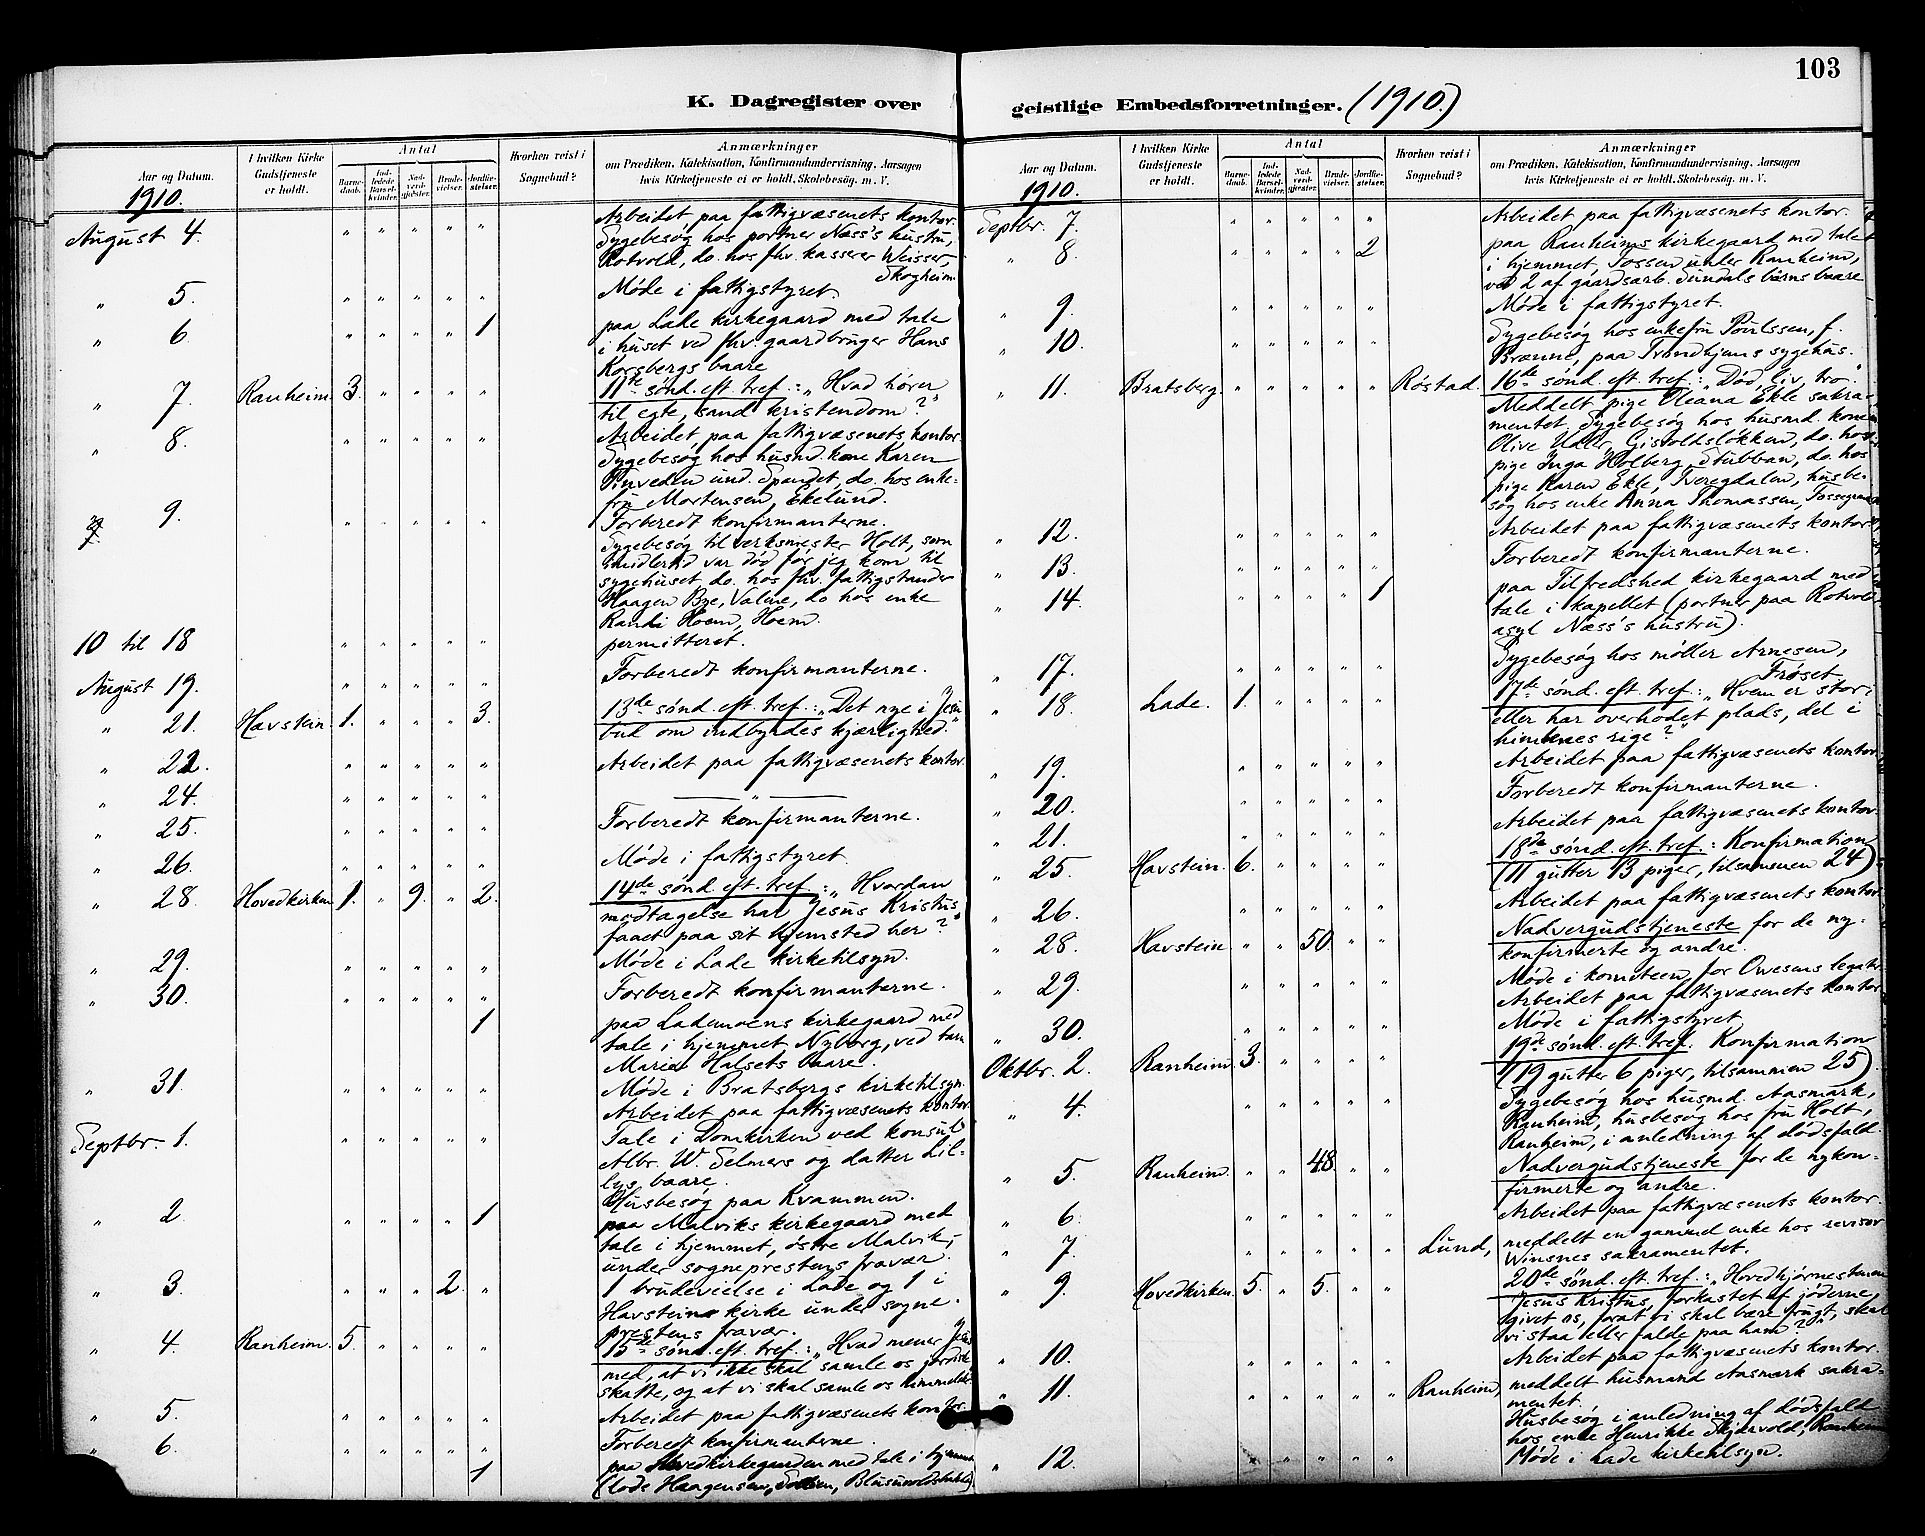 103
K. Dagregister over
geistlige Embedsforretninger. (1910.)
Aar og Datum.
1910.
I hvilken Kirke
Gudstjeneste
er holdt.
Antal
Barne-
daab.
Ind-
ledede
Barsel-
kvinder.
Nad-
verd-
gjæster.
Brude-
vielser.
Jordfæ-
stelser.
Hvorhen reist i
Sognebud?
Anmærkninger
om Prædiken, Katekisation, Konfirmandundervisning, Aarsagen
hvis Kirketjeneste ei er holdt, Skolebesøg. m. V.
August 4. " " " " " Arbeidet paa fattigvæsenets kontor.
Sygebesøg hos portner Næss's hustru,
Rotvold, do. hos fhv. kasserer Weisser,
Skogheim.
" 5. " " " " " Møde i fattigstyret.
" 6. " " " " 1 paa Lade kirkegaard med tale
i huset ved fhv. gaardbruger Hans
Korsbergs baare
" 7. Ranheim. 3. " " " " 11te sønd. eft. tref.: "Hvad hører
til egte, sand kristendom?"
" 8. " " " " " Arbeidet paa fattigvæsenets kontor.
Sygebesøg hos husmd. kone Karen
und. Spandet, do. hos enke-
fru Mortensen, Ekelund.
" 9. " " " " " Forberedt konfirmanterne.
Sygebesøg til verksmester Holt, som
imidlertid var død før jeg kom til
sygehuset, do. hos fhv. fattigforstander
Haagen Bye, do. hos enke
Randi Hoem, Hoem.
10 til 18 " " " " " permitteret.
August 19. " " " " " Forberedt konfirmanterne.
" 21. Havstein. 1. " " " 3. 13de sønd. eft. tref.: "Det nye i Jesu
bud om indbyrdes kjærlighed."
" 22. " " " " " Arbeidet paa fattigvæsenets kontor.
" 24. " " " " " "
" 25. " " " " " Forberedt konfirmanterne.
" 26. " " " " " Møde i fattigstyret.
" 28. Hovedkirken 1. " 9. " 2. 14de sønd. eft. tref.: "Hvordan
modtagelse har Jesus Kristus
faaet paa sit hjemsted her?"
" 29. " " " " " Møde i Lade kirketilsyn.
" 30. " " " " " Forberedt konfirmanterne.
1 paa Lademoens kirkegaard med
tale i hjemmet Nyborg, ved
Marie Halsets baare.
" 31. " " " " " Møde i Bratsbergs kirketilsyn.
Arbeidet paa fattigvæsenets kontor.
Septbr. 1. " " " " " Tale i Domkirken ved konsul
Albr. W. Selmers og datter Lil-
lys baare.
Husbesøg paa Kvammen.
" 2. " " " " 1 paa Malviks kirkegaard med
tale i hjemmet, østre Malvik,
under sogneprestens fravær.
" 3. " " " 2. " 1 brudevielse i Lade og 1 i
Havsteins kirke under sogne-
prestens fravær.
" 4. Ranheim. 5. " " " " 15de sønd. eft. tref.: "Hvad mener Jesus
med, at vi ikke skal samle os jordiske
skatte, og at vi skal samle os himmelske
" 5. " " " " " Arbeidet paa fattigvæsenets kontor.
" 6. " " " " " Forberedt konfirmanterne.
1 paa Hovedkirkegaarden med tale i hjemmet
Aar og Datum.
1910.
I hvilken Kirke
Gudstjeneste
er holdt.
Antal
Barne-
daab.
Ind-
ledede
Barsel-
kvinder.
Nad-
verd-
gjæster.
Brude-
vielser.
Jordfæ-
stelser.
Hvorhen reist i
Sognebud?
Anmærkninger
om Prædiken, Katekisation, Konfirmandundervisning, Aarsagen
hvis Kirketjeneste ei er holdt, Skolebesøg. m. V.
Septbr. 7. " " " " " Arbeidet paa fattigvæsenets kontor.
" 8. " " " " 2 paa Ranheims kirkegaard med tale
i hjemmet, Fossen under Ranheim,
ved 2 af gaardsarb. Sundals børns baare
" 9. " " " " " Møde i fattigstyret.
" 10. " " " " " Sygebesøg hos enkefru Poulssen, f.
Brænne, paa Trondhjems sygehus.
" 11. Bratsberg. " " " " " Røstad. 16te sønd. eft. tref.: "Død, liv, tro."
Meddelt pige Oleana Ekle sakra-
mentet, Sygebesøg hos husmd. kone
Olive Gisvoldsløkken, do. hos
pige Inga Holberg, Stubban, do. hos
pige Karen Ekle, Tveregdalen, husbe-
søg hos enke Anna Thomassen,
" 12. " " " " " Arbeidet paa fattigvæsenets kontor
" 13. " " " " " Forberedt konfirmanterne.
" 14. " " " " 1 paa Tilfredshed kirkegaard med
tale i kapellet (portner paa Rotvold
asyl Næss's hustru).
" 17. " " " " " Sygebesøg hos møller Arnesen,
Frøset.
" 18. Lade. 1. " " " " 17te sønd. eft. tref.: "Hvem er stor,
eller har overhodet plads, del i
himlenes rige?"
" 19. " " " " " Arbeidet paa fattigvæsenets kontor.
" 20. " " " " " Forberedt konfirmanterne.
" 21. " " " " " Arbeidet paa fattigvæsenets kontor
" 25. Havstein. 6. " " " " 18de sønd. eft. tref.: Konfirmation
(11 gutter 13 piger, tilsammen 24)
" 26. " " " " " Arbeidet paa fattigvæsenets kontor
" 28. Havstein " " 50. " " Nadvergudstjeneste for de ny-
konfirmerte og andre.
" 29. " " " " " Møde i komiteen for Owesens legater
Arbeidet paa fattigvæsenets kontor
" 30. " " " " " Møde i fattigstyret
Oktbr. 2. Ranheim. 3. " " " " 19de sønd. eft. tref. Konfirmation
(19 gutter 6 piger, tilsammen 25).
" 4. " " " " " Sygebesøg hos husmd. Aasmark,
Ranheim, husbesøg hos fru Holt,
Ranheim, i anledning af dødsfald.
" 5. Ranheim. " " 48. " " Nadvergudstjeneste for de nykon-
firmerte og andre.
" 6. " " " " " Arbeidet paa fattigvæsenets kontor.
" 7. " " " " " Lund, meddelt en gammel enke hos revisor
Winsnes sakramentet.
" 9. Hovedkirken. 5. " 5. " " 20de sønd. eft. tref.: "Hovedhjørnestenen
Jesus Kristus, forkastet af jøderne,
givet os, forat vi skal bære frugt, skal
vi staa eller falde paa ham?"
" 10. " " " " " Arbeidet paa fattigvæsenets kontor.
" 11. " " " " " Ranheim, meddelt husmand Aasmark sakra-
mentet.
Husbesøg i anledning af dødsfald
hos enke Henrikke Skjærvold, Ranheim
" 12. " " " " " Møde i Lade kirketilsyn.